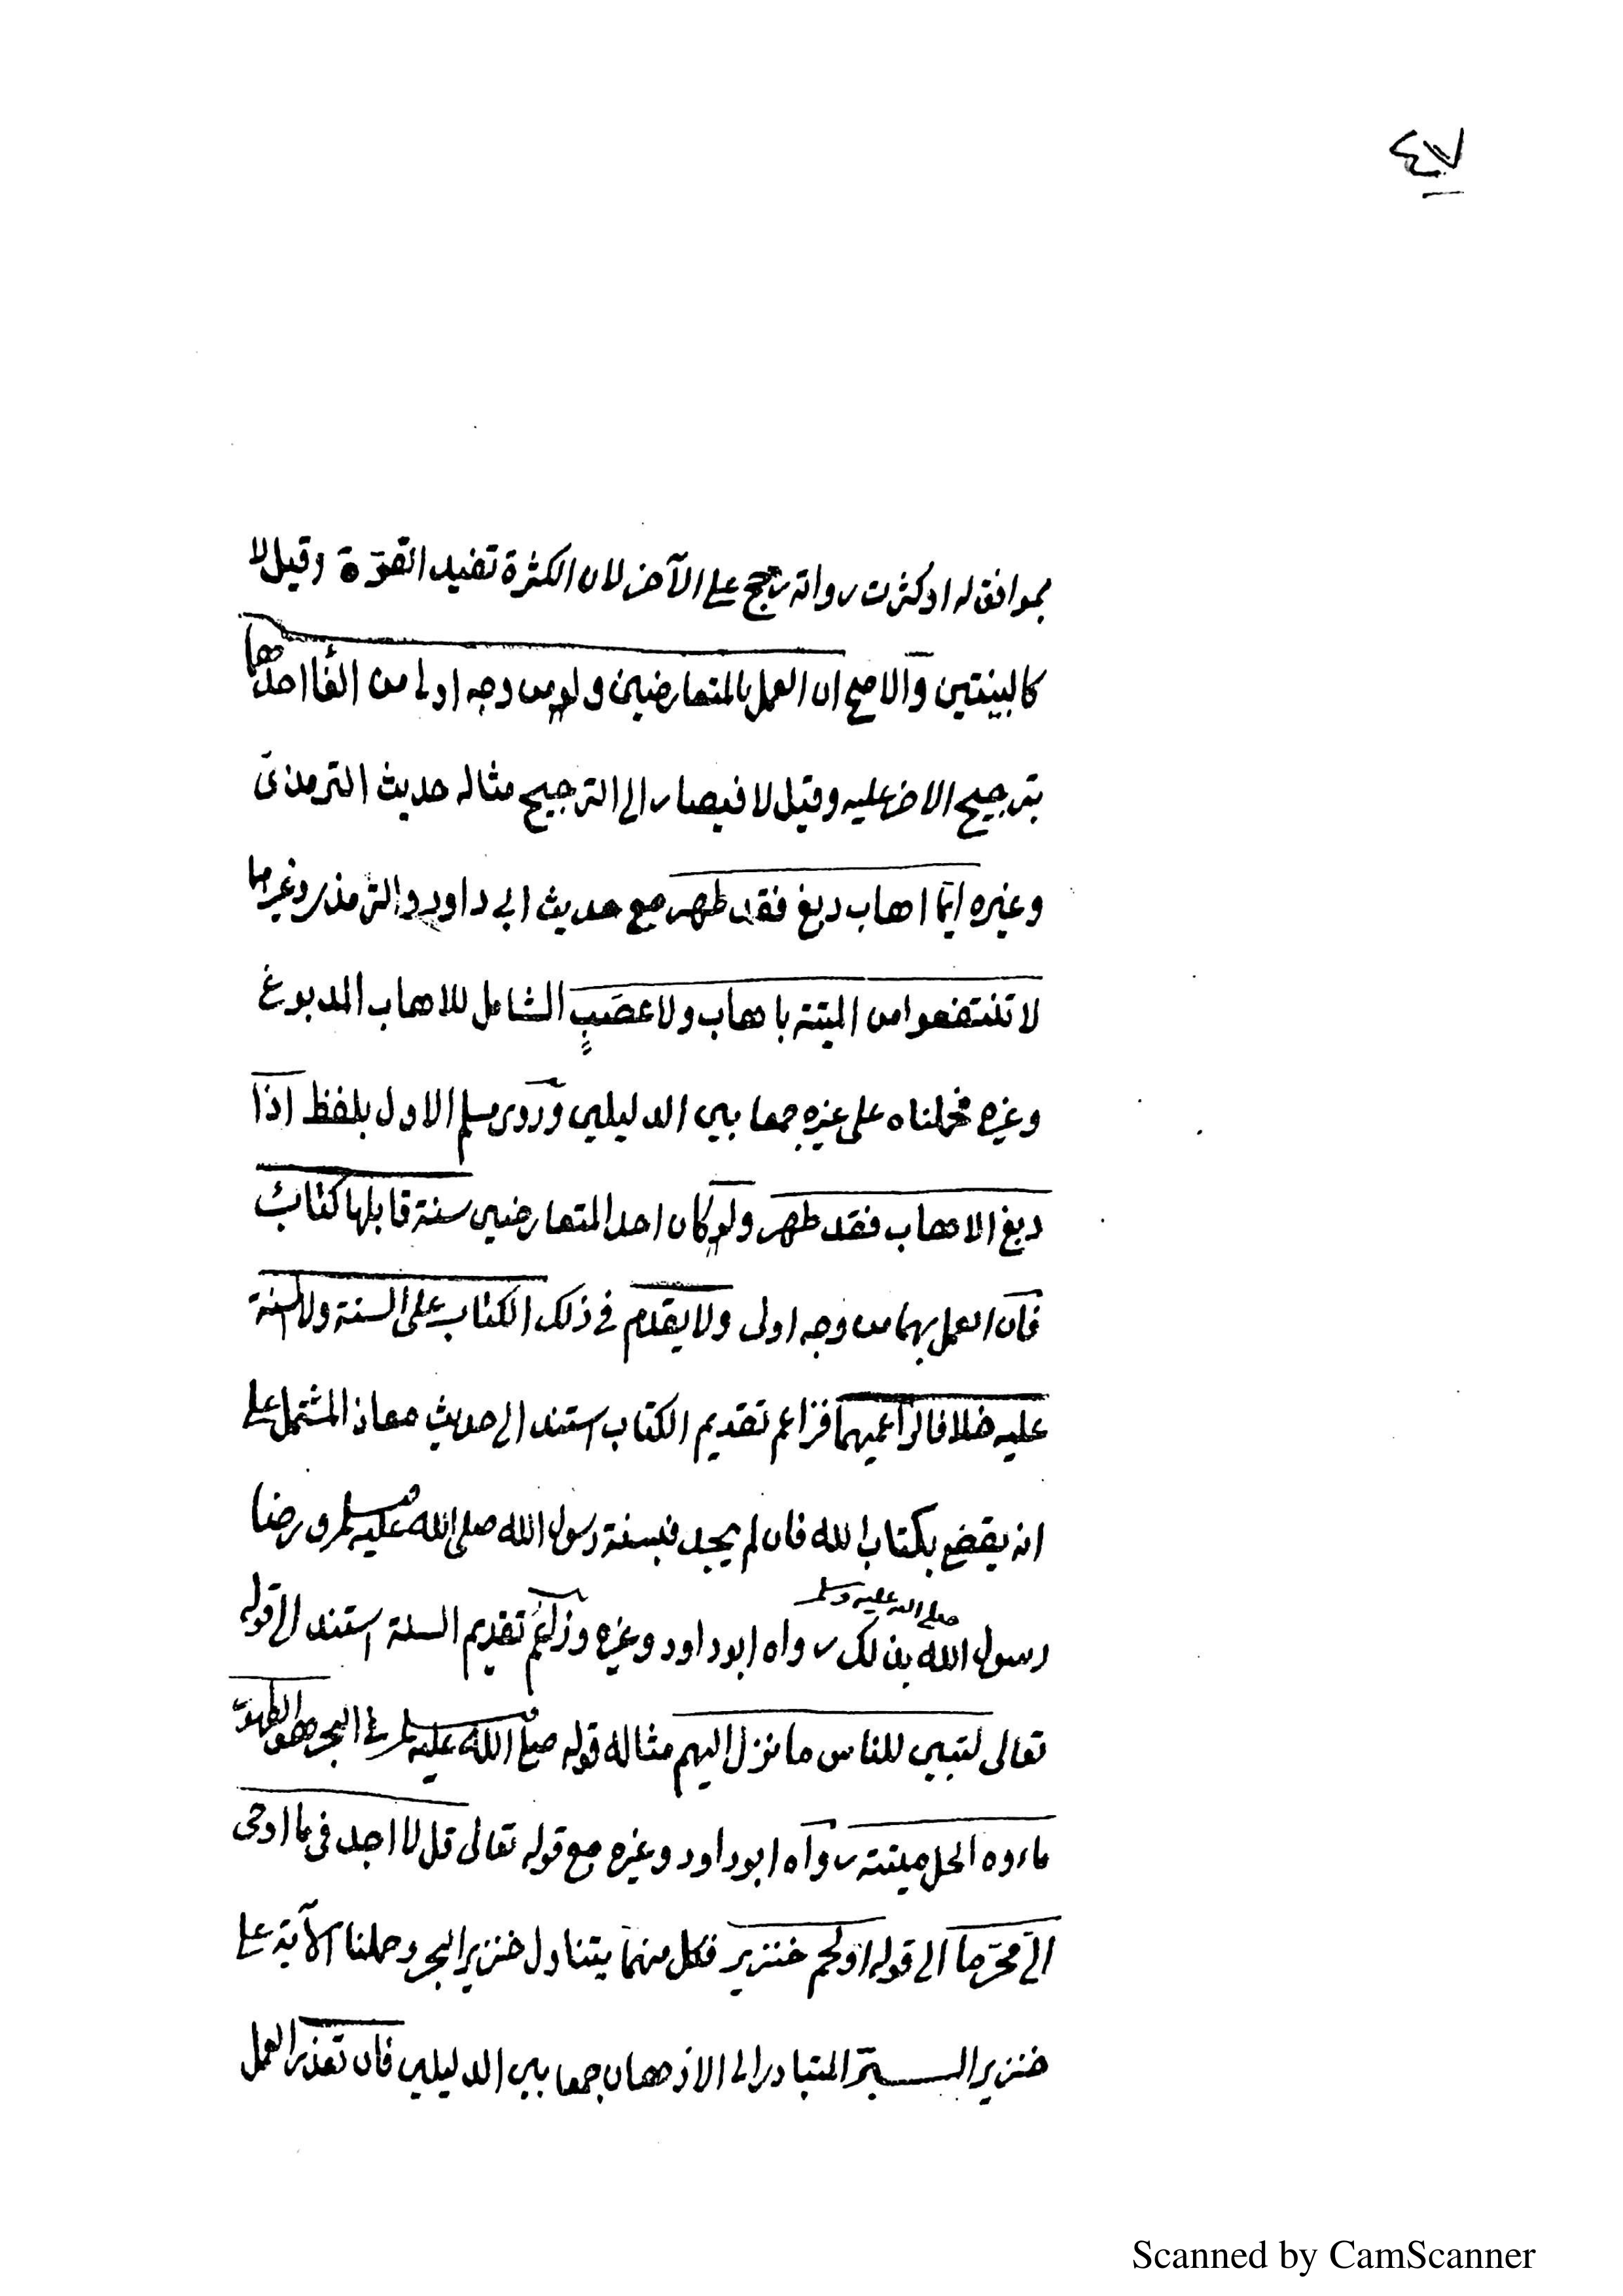 ٤٧
بموافق له او كثرت رواته رجح على الآخر لان الكثرة تفيد القوّة وقيل لا
كالبينتين والاصح ان العمل بالمتعارضين ولو من وجه اولى من الغا احدهما
بترجيح الاخر عليه وقيل لا فيصار الى الترجيح مثاله حديث الترمذى
وغيره ايّما اهاب دبغ فقد طهر مع حديث ابي داود والترمذي وغيرهما
لا تنتفعوا من الميتة باهاب ولا عصَبٍ الشامل للاهاب المدبوغ
وغيره فحملناه على غيره جمعا بين الدليلين وروى مسلم الاول بلفظ اذا
دبغ الاهاب فقد طهر ولو كان احد المتعارضين سنة قابلها كتاب
فان العمل بهما من وجه اولى ولا يقدم في ذلك الكتاب على السنة ولا السنة
عليه خلافا لزاعميهما فزاعم تقديم الكتاب استند الى حديث معاذ المشتمل على
انه يقضى بكتاب الله فان لم يجد فبسنة رسول الله صلى الله عليه وسلم ورضا
رسول الله صلى الله عليه وسلم بذلك رواه ابو داود وغيره وزاعم تقديم السنة استند الى قوله
تعالى لتبين للناس ما نزل اليهم مثاله قوله صلى الله عليه وسلم في البحر هو الطهور
ماءوه الحل ميتته رواه ابو داود وغيره مع قوله تعالى قل لا اجد في ما اوحى
اليّ محرّما الى قوله او لحم خنزير فكل منهما يتناول خنزير البحر وحملنا الآية على
خنزير البرّ المتبادر الى الاذهان جمعا بين الدليلين فان تعذر العمل
Scanned by CamScanner